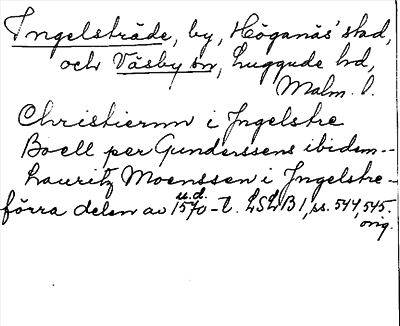 Ingelsträde, by, Höganäs' stad,
och Väsby sn, Luggude hd,
Malm. l.
Christiernn i Jngelstre
Boell per Gunderssens ibidem --
Lauritz Moenssen i Jngelstre -
u.d.
förra delen av 1570-t. LSLB 1, ss. 544, 545.
orig.